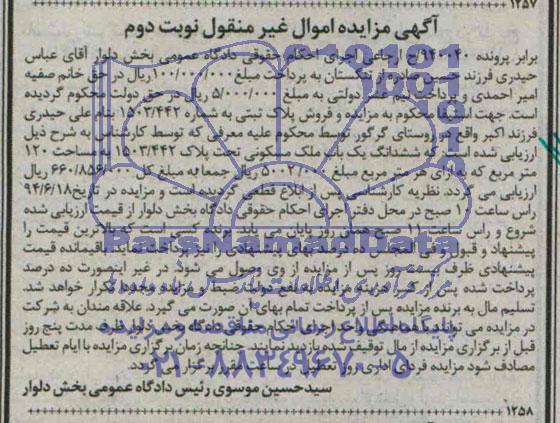 ۱۲۵۷
آگهی مزایده اموال غیر منقول نوبت دوم
برابر پرونده ۹۴۰۰۴۰/ح ارجاعی اجرای احکام حقوقی دادگاه عمومی بخش دلوار آقای عباس
حیدری فرزند حسین صادره از تنگستان به پرداخت مبلغ ۱۰۰/۰۰۰/۰۰۰ ریال در حق خانم صفیه
امیر احمدی و پرداخت نیم عشر دولتی به مبلغ ۵/۰۰۰/۰۰۰ ریال در حق دولت محکوم گردیده
است. جهت استیفا محکوم به مزایده و فروش پلاک ثبتی به شماره ۱۵۰۳/۴۴۲ بنام علی حیدری
فرزند اکبر واقع در روستای گرگور توسط محکوم علیه معرفی که توسط کارشناس به شرح ذیل
ارزیابی شده است که ششدانگ یک باب ملک مسکونی تحت پلاک ۱۵۰۳/۴۴۲ به مساحت ۱۲۰
متر مربع که به ازای هر متر مربع مبلغ ریال جمعا به مبلغ کل ۶۶۰/۸۵۶/۰۰۰ ریال
ارزیابی می گردد. نظریه کارشناسی پس از ابلاغ قطعی گردیده است و مزایده در تاریخ ۹۴/۶/۱۸
راس ساعت ۱۰ صبح در محل دفتر اجرای احکام حقوقی دادگاه بخش دلوار از قیمت ارزیابی شده
شروع و راس ساعت ۱۱ صبح همان روز پایان می یابد. برنده کسی است که بالاترین قیمت را
پیشنهاد و قبول و فی المجلس ده درصد بهای پیشنهادی را نیز پرداخت نماید باقیمانده قیمت
پیشنهادی ظرف بیست روز پس از مزایده از وی وصول می شود. در غیر اینصورت ده درصد
پرداخت شده پس از کسر هزینه مزایده به نفع دولت ضبط و مزایده مجددا تکرار خواهد شد.
تسلیم مال به برنده مزایده پس از پرداخت تمام بهای آن صورت می گیرد. علاقه مندان به شرکت
در مزایده می توانند با هماهنگی واحد اجرای احکام حقوقی دادگاه بخش دلوار ظرف مدت پنج روز
قبل از برگزاری مزایده از مال توقیف شده بازدید نمایند. چنانچه زمان برگزاری مزایده با ایام تعطیل
مصادف شود مزایده فردای اداری روز تعطیل در ساعت مقرر برگزار می گردد.
سیدحسین موسوی رئیس دادگاه عمومی بخش دلوار
۱۲۵۸
ParsNamadData
پایگاه اطلاع رسانی مناقصه و مزایده
۰۲۱-۸۸۳۴۹۶۷۰-۵